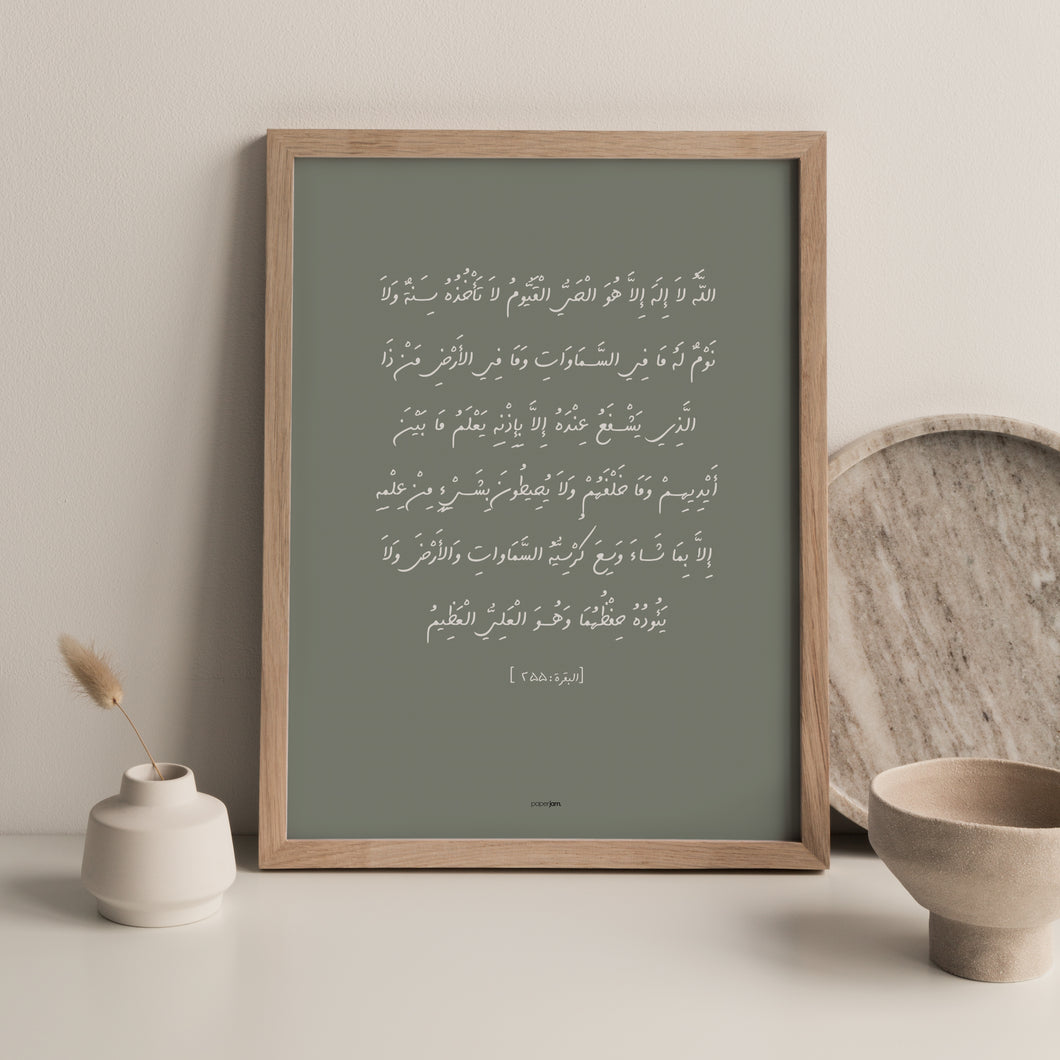 اللَّهُ لاَ إِلَهَ إِلاَّ هُوَ الْحَيُّ الْقَيُّومُ لاَ تَأْخُذُهُ سِنَةٌ وَلاَ
نَوْمٌ لَهُ مَا فِي السَّمَاوَاتِ وَمَا فِي الأَرْضِ مَنْ ذَا
الَّذِي يَشْفَعُ عِنْدَهُ إِلاَّ بِإِذْنِهِ يَعْلَمُ مَا بَيْنَ
أَيْدِيهِمْ وَمَا خَلْفَهُمْ وَلاَ يُحِيطُونَ بِشَيْءٍ مِنْ عِلْمِهِ
إِلاَّ بِمَا شَاءَ وَسِعَ كُرْسِيُّهُ السَّمَاواتِ وَالأَرْضَ وَلاَ
يَئُودُهُ حِفْظُهُمَا وَهُوَ الْعَلِيُّ الْعَظِيمُ
[البقرة: ۲۵۵ ]
paperjam.